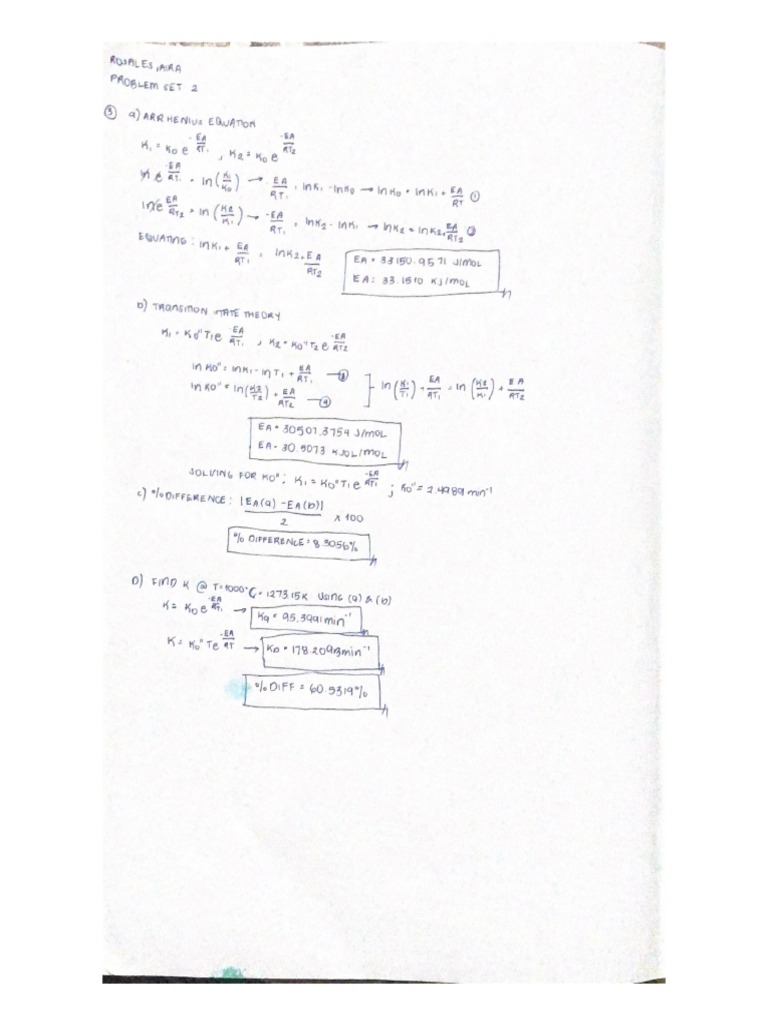 ROSALES, AIRA
PROBLEM SET 2
③ a) ARRHENIUS EQUATION
K₁ = K₀ e^(-EA/RT₁) , K₂ = K₀ e^(-EA/RT₂)
ln e^(-EA/RT₁) = ln(K₁/K₀) → -EA/RT₁ = lnK₁ - lnK₀ → lnK₀ = lnK₁ + EA/RT ①
ln e^(-EA/RT₂) = ln(K₂/K₁) → -EA/RT₁ = lnK₂ - lnK₁ → lnK₂ = lnK₂ + EA/RT₂ ②
EQUATING : lnK₁ + EA/RT₁ = lnK₂ + EA/RT₂
EA = 33150.9571 J/MOL
EA = 33.1510 KJ/MOL
b) TRANSITION STATE THEORY
K₁ = K₀" T₁ e^(-EA/RT₁) , K₂ = K₀" T₂ e^(-EA/RT₂)
ln K₀" = lnK₁ - ln T₁ + EA/RT₁ — ③
ln K₀" = ln(K₂/T₂) + EA/RT₂ — ④
ln(K₁/T₁) + EA/RT₁ = ln(K₂/K₁) + EA/RT₂
EA = 30507.3754 J/MOL
EA = 30.5073 KJOL/MOL
SOLVING FOR K₀" : K₁ = K₀" T₁ e^(-EA/RT₁) ; K₀" = 2.4989 min⁻¹
c) % DIFFERENCE : |EA(a) - EA(b)|/2 x 100
% DIFFERENCE = 8.3056%
D) FIND K @ T=1000°C = 1273.15K USING (a) & (b)
K = K₀ e^(-EA/RT₁) → Ka = 95.3991 min⁻¹
K = K₀" T e^(-EA/RT) → Kb = 178.2093 min⁻¹
% DIFF = 60.5319%